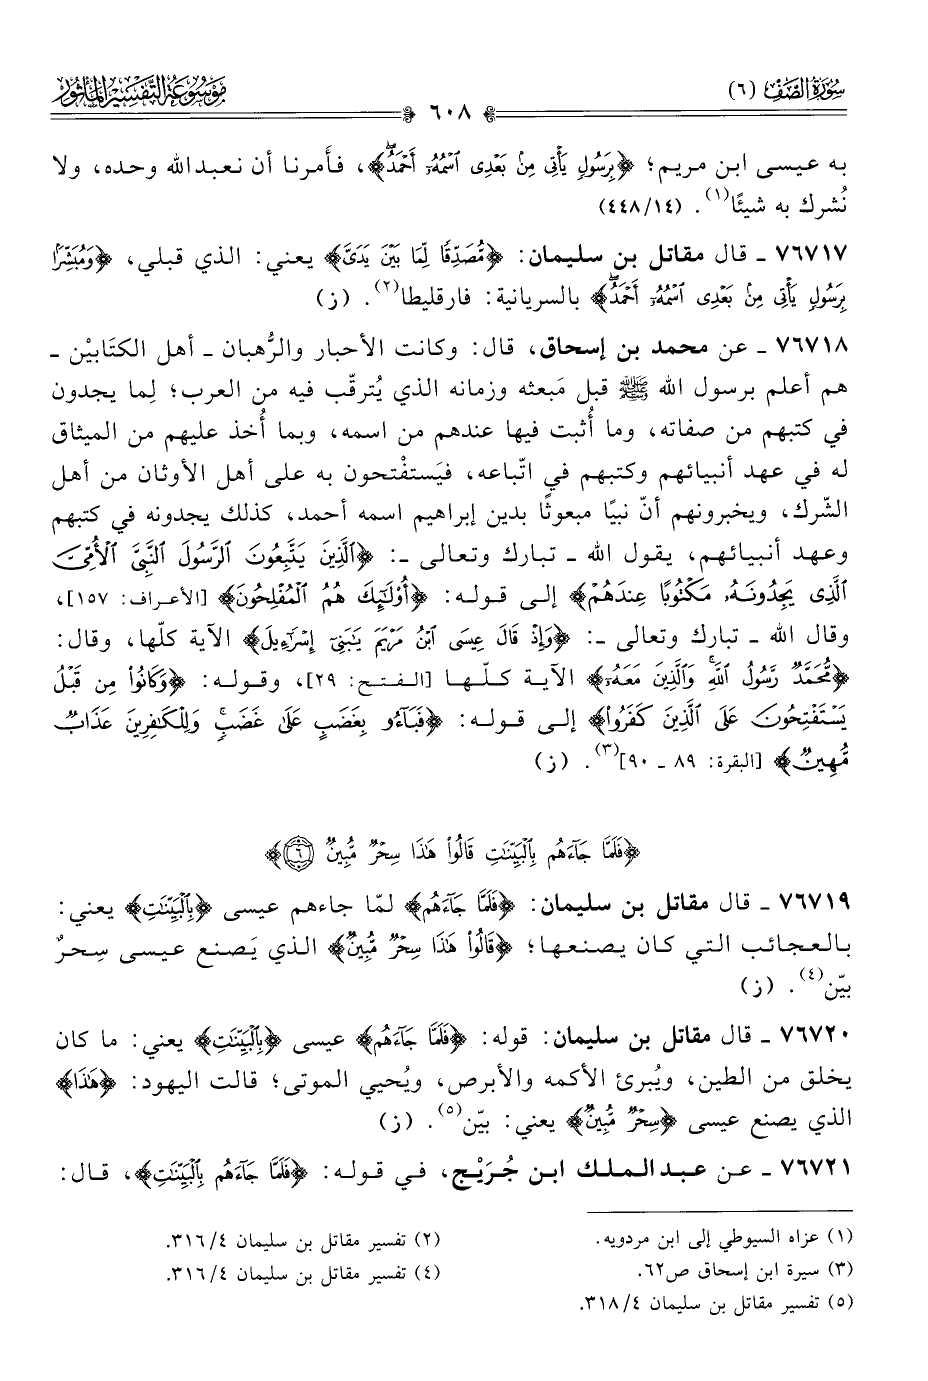 سورة الصف (٦)
٦٠٨
موسوعة التفسير المأثور
به عيسى ابن مريم؛ ﴿بِرَسُولٍ يَأْتِي مِنْ بَعْدِي اسْمُهُ أَحْمَدُ﴾، فأمرنا أن نعبد الله وحده، ولا
نُشرك به شيئًا(١). (٤٤٨/١٤)
٧٦٧١٧ ـ قال مقاتل بن سليمان: ﴿مُصَدِّقًا لِمَا بَيْنَ يَدَيَّ﴾ يعني: الذي قبلي، ﴿وَمُبَشِّرًا
بِرَسُولٍ يَأْتِي مِنْ بَعْدِي اسْمُهُ أَحْمَدُ﴾ بالسريانية: فارقليطا(٢). (ز)
٧٦٧١٨ ـ عن محمد بن إسحاق، قال: وكانت الأحبار والرُّهبان ـ أهل الكتَابيْن ـ
هم أعلم برسول الله ﷺ قبل مَبعثه وزمانه الذي يُترقّب فيه من العرب؛ لِما يجدون
في كتبهم من صفاته، وما أُثبت فيها عندهم من اسمه، وبما أُخذ عليهم من الميثاق
له في عهد أنبيائهم وكتبهم في اتّباعه، فيَستفْتحون به على أهل الأوثان من أهل
الشّرك، ويخبرونهم أنّ نبيًا مبعوثًا بدين إبراهيم اسمه أحمد، كذلك يجدونه في كتبهم
وعهد أنبيائهم، يقول الله ـ تبارك وتعالى ـ: ﴿الَّذِينَ يَتَّبِعُونَ الرَّسُولَ النَّبِيَّ الْأُمِّيَّ
الَّذِي يَجِدُونَهُ مَكْتُوبًا عِنْدَهُمْ﴾ إلى قوله: ﴿أُولَئِكَ هُمُ الْمُفْلِحُونَ﴾ [الأعراف: ١٥٧]،
وقال الله ـ تبارك وتعالى ـ: ﴿وَإِذْ قَالَ عِيسَى ابْنُ مَرْيَمَ يَابَنِي إِسْرَائِيلَ﴾ الآية كلّها، وقال:
﴿مُحَمَّدٌ رَسُولُ اللَّهِ وَالَّذِينَ مَعَهُ﴾ الآية كلّها [الفتح: ٢٩]، وقوله: ﴿وَكَانُوا مِنْ قَبْلُ
يَسْتَفْتِحُونَ عَلَى الَّذِينَ كَفَرُوا﴾ إلى قوله: ﴿فَبَاءُو بِغَضَبٍ عَلَى غَضَبٍ وَلِلْكَافِرِينَ عَذَابٌ
مُهِينٌ﴾ [البقرة: ٨٩ ـ ٩٠](٣). (ز)
﴿فَلَمَّا جَاءَهُمْ بِالْبَيِّنَاتِ قَالُوا هَذَا سِحْرٌ مُبِينٌ ٦﴾
٧٦٧١٩ ـ قال مقاتل بن سليمان: ﴿فَلَمَّا جَاءَهُمْ﴾ لمّا جاءهم عيسى ﴿بِالْبَيِّنَاتِ﴾ يعني:
بالعجائب التي كان يصنعها؛ ﴿قَالُوا هَذَا سِحْرٌ مُبِينٌ﴾ الذي يَصنع عيسى سِحرٌ
بيّن(٤). (ز)
٧٦٧٢٠ ـ قال مقاتل بن سليمان: قوله: ﴿فَلَمَّا جَاءَهُمْ﴾ عيسى ﴿بِالْبَيِّنَاتِ﴾ يعني: ما كان
يخلق من الطين، ويُبرئ الأكمه والأبرص، ويُحيي الموتى؛ قالت اليهود: ﴿هَذَا﴾
الذي يصنع عيسى ﴿سِحْرٌ مُبِينٌ﴾ يعني: بيّن(٥). (ز)
٧٦٧٢١ ـ عن عبد الملك ابن جُرَيْج، في قوله: ﴿فَلَمَّا جَاءَهُمْ بِالْبَيِّنَاتِ﴾، قال:
(١) عزاه السيوطي إلى ابن مردويه.
(٢) تفسير مقاتل بن سليمان ٣١٦/٤.
(٣) سيرة ابن إسحاق ص٦٢.
(٤) تفسير مقاتل بن سليمان ٣١٦/٤.
(٥) تفسير مقاتل بن سليمان ٣١٨/٤.